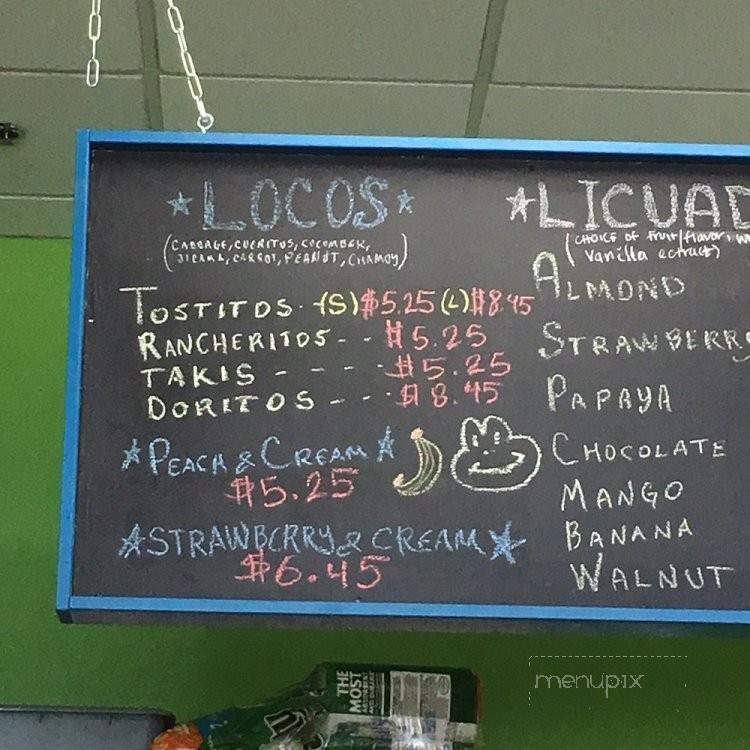 ★ LOCOS ★
(CABBAGE, CUERITOS, CUCUMBER,
JICAMA, CARROT, PEANUT, CHAMOY)
TOSTITOS - (S) $5.25 (L) $8.45
RANCHERITOS - - $5.25
TAKIS - - - - $5.25
DORITOS - - - $8.45
★ PEACH & CREAM ★
$5.25
★ STRAWBERRY & CREAM ★
$6.45
★ LICUAD
(CHOICE of fruit/flavor,
vanilla extract)
ALMOND
STRAWBERRY
PAPAYA
CHOCOLATE
MANGO
BANANA
WALNUT
THE
MOST
menupix